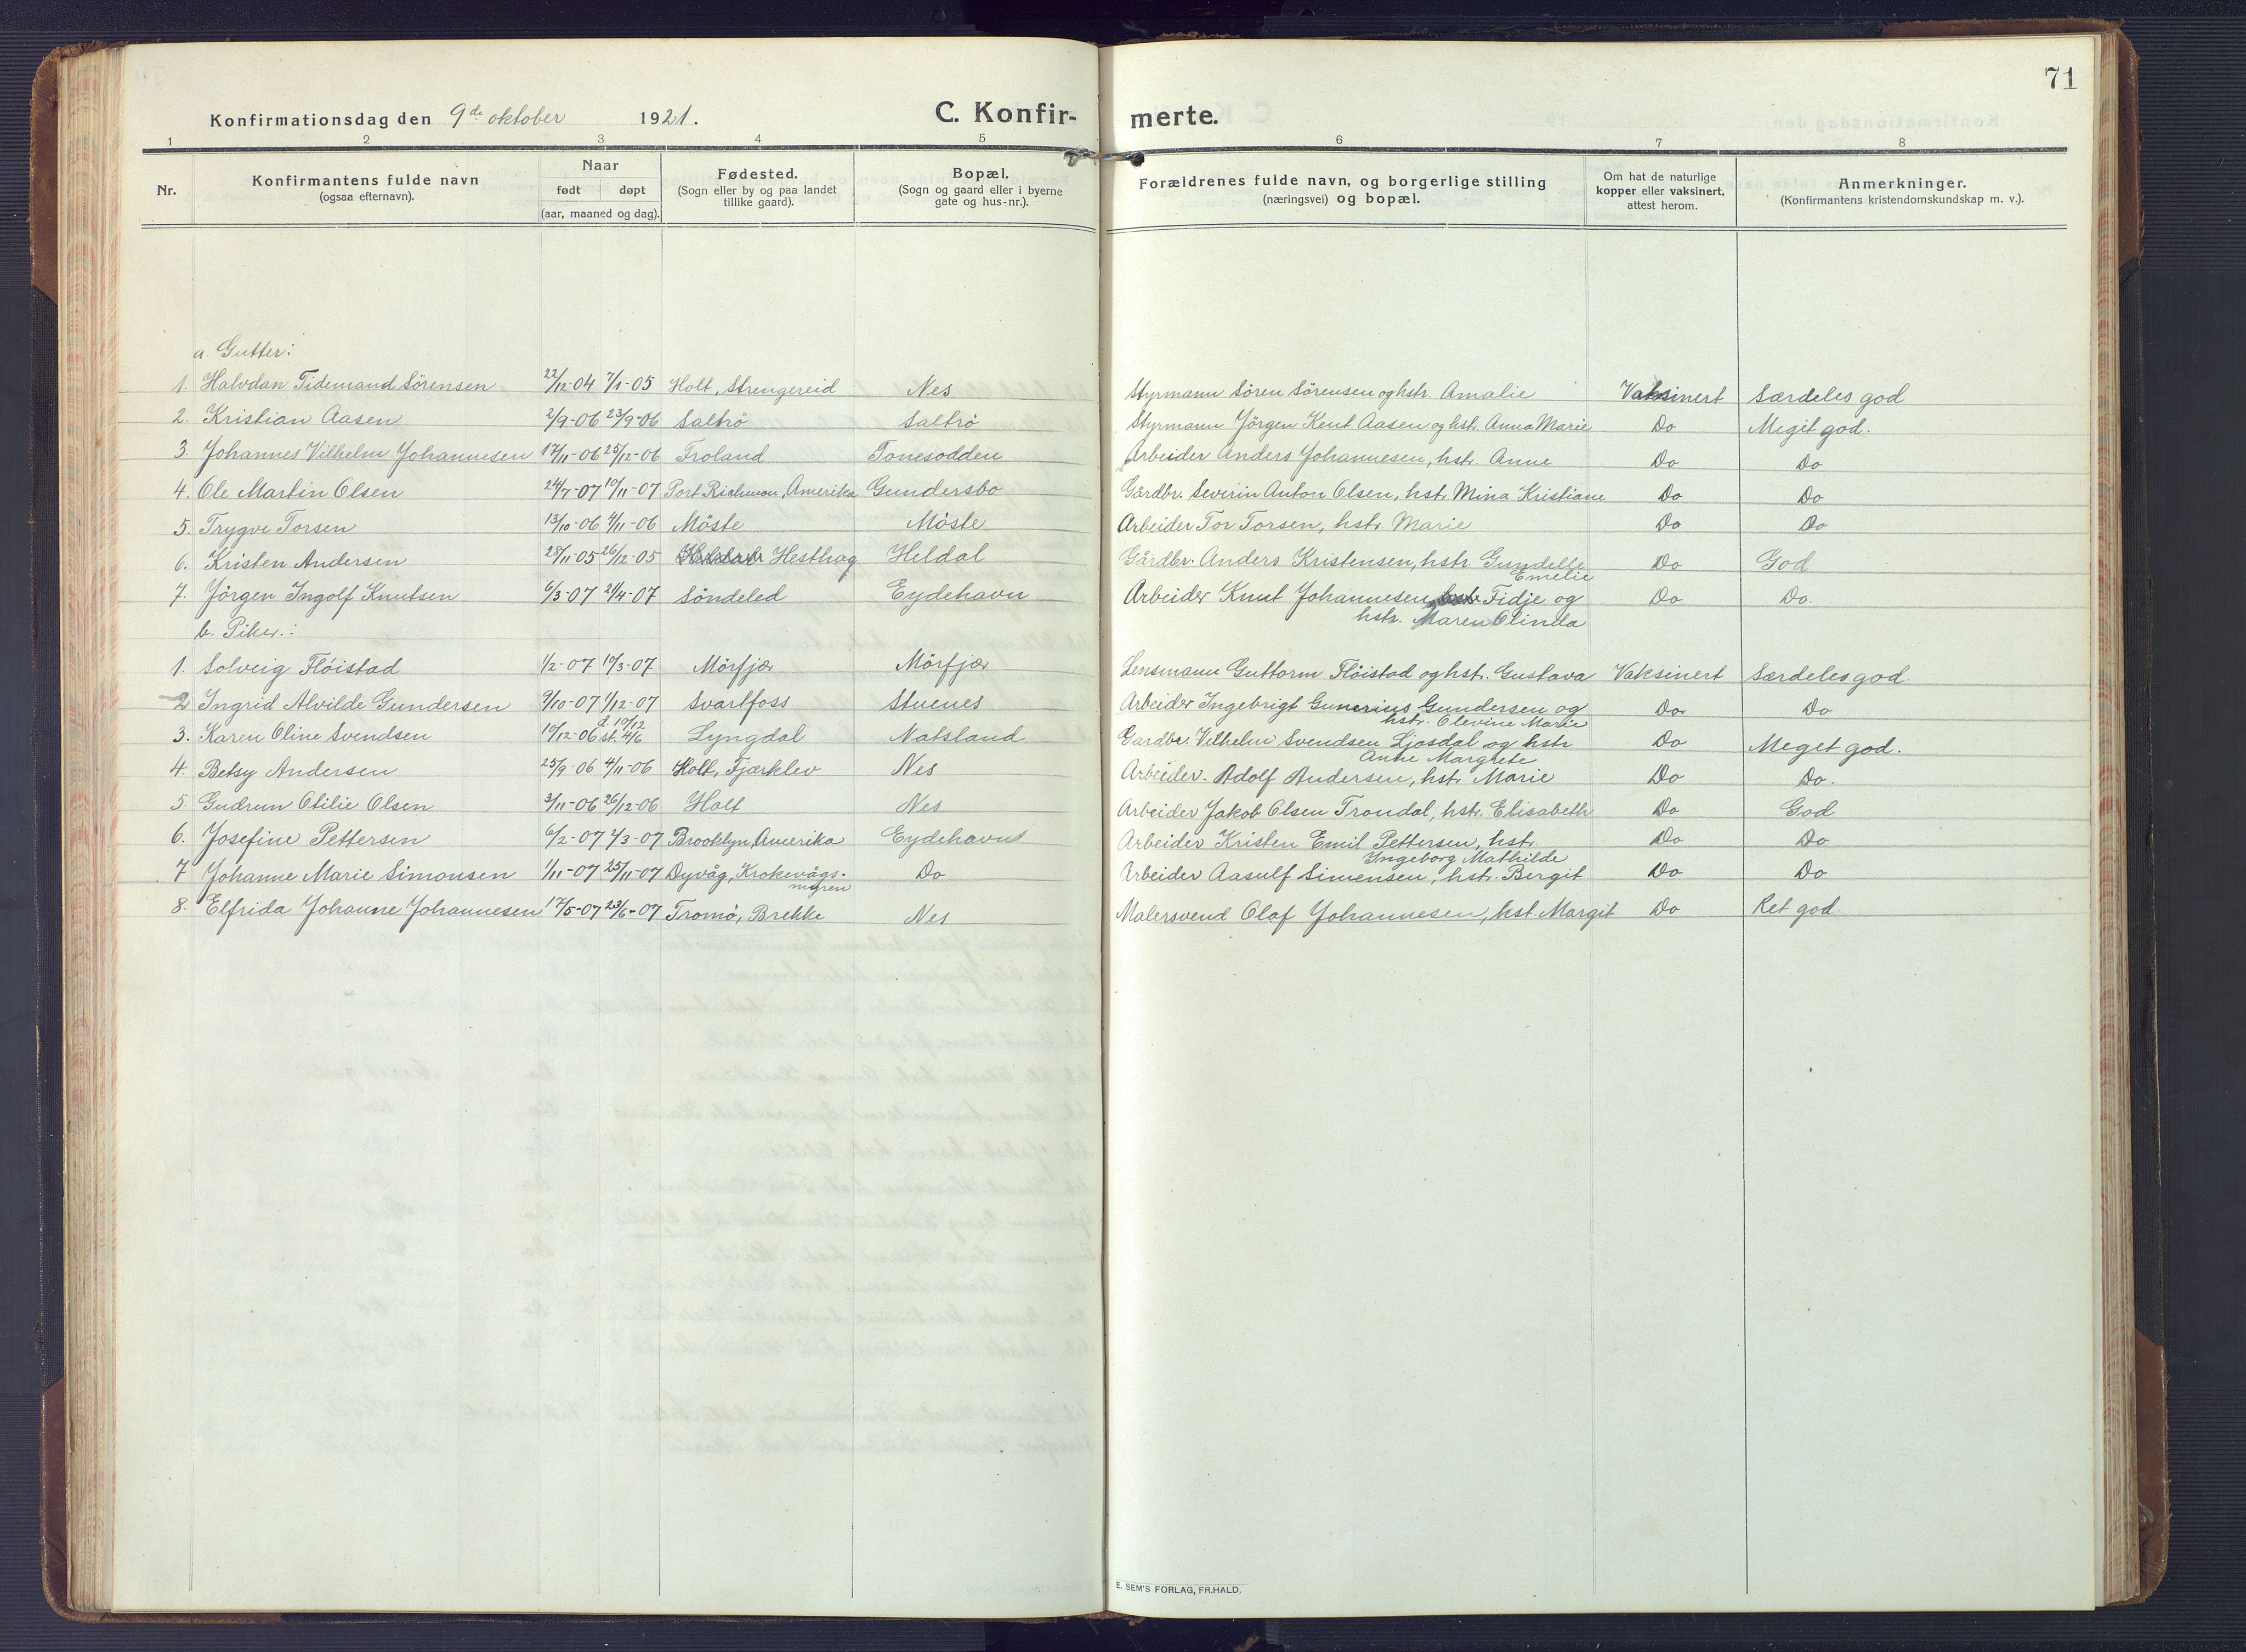 71
Konfirmationsdag den 9de oktober 1921.
C. Konfirmerte.
1 2 3 4 5 6 7 8
Nr. Konfirmantens fulde navn (ogsaa efternavn). Naar født døpt (aar, maaned og dag). Fødested. (Sogn eller by og paa landet tillike gaard). Bopæl. (Sogn og gaard eller i byerne gate og hus-nr.). Forældrenes fulde navn, og borgerlige stilling (næringsvei) og bopæl. Om hat de naturlige kopper eller vaksinert, attest herom. Anmerkninger. (Konfirmantens kristendomskundskap m. v.).
a. Gutter:
1. Halvdan Tidemand Sörensen 22/12-04 7/1-05 Holt, Strengereid Nes Styrmann Sören Sörensen og hstr. Amalie Vaksinert Særdeles god
2. Kristian Aasen 2/9-06 23/9-06 Saltrö Saltrö Styrmann Jörgen Kent Aasen og hst. Anna Marie Do Megit god.
3. Johannes Vilhelm Johannesen 17/11-06 25/12-06 Froland Tonesodden Arbeider Anders Johannesen, hstr. Anne Do Do
4. Ole Martin Olsen 24/7-07 10/11-07 Port Richmon, Amerika Gundersbo Gårdbr. Severin Anton Olsen, hstr Mina Kristiane Do Do
5. Trygve Torsen 13/10-06 4/11-06 Möste Möste Arbeider Tor Torsen, hstr. Marie Do Do
6. Kristen Andersen 28/11-05 26/12-05 Hesthag Heldal Gårdbr. Anders Kristensen, hstr. Gundelle Emelie Do God
7. Jörgen Ingolf Knutsen 6/3-07 21/4-07 Söndeled Eydehavn Arbeider Knut Johannesen Fidje og Do Do.
hstr. Maren Olinda
b. Piker.:
1. Solveig Flöistad 1/2-07 10/3-07 Mörfjær Mörfjær Lensmann Guttorm Flöistad og hst. Gustava Vaksinert Særdeles god.
2 Ingrid Alvilde Gundersen 9/10-07 1/12-07 Svartfoss Stuenes Arbeider Ingebrigt Gunerius Gundersen og hstr. Olevine Marie Do Do
3. Karen Oline Svendsen 10/12-06 d. 10/12 st. 4/6 Lyngdal Natsland Gardbr. Vilhelm Svendsen Ljosdal og hstr Anne Margrete Do Meget god.
4. Betsy Andersen 25/9-06 4/11-06 Holt, Fjærklev Nes Arbeider. Adolf Andersen, hstr. Marie Do Do.
5. Gudrun Otilie Olsen 3/11-06 26/12-06 Holt Nes Arbeider Jakob Olsen Trondal, hstr. Elisabeth Do God
6. Josefine Pettersen 6/2-07 2/3-07 Brooklyn, Amerika Eydehavn Arbeider Kristen Emil Pettersen, hstr. Ingeborg Mathilde Do Do
7 Johanne Marie Simonsen 1/11-07 25/11-07 Dyvåg, Krokevågs- myren Do Arbeider Aasulf Simensen, hstr. Bergit Do Do
8. Elfrida Johanne Johannesen 17/5-07 23/6-07 Tromö, Brekke Nes Malersvend Olaf Johannesen, hst. Margit Do Ret god.
E. SEM'S FORLAG, FR.HALD.